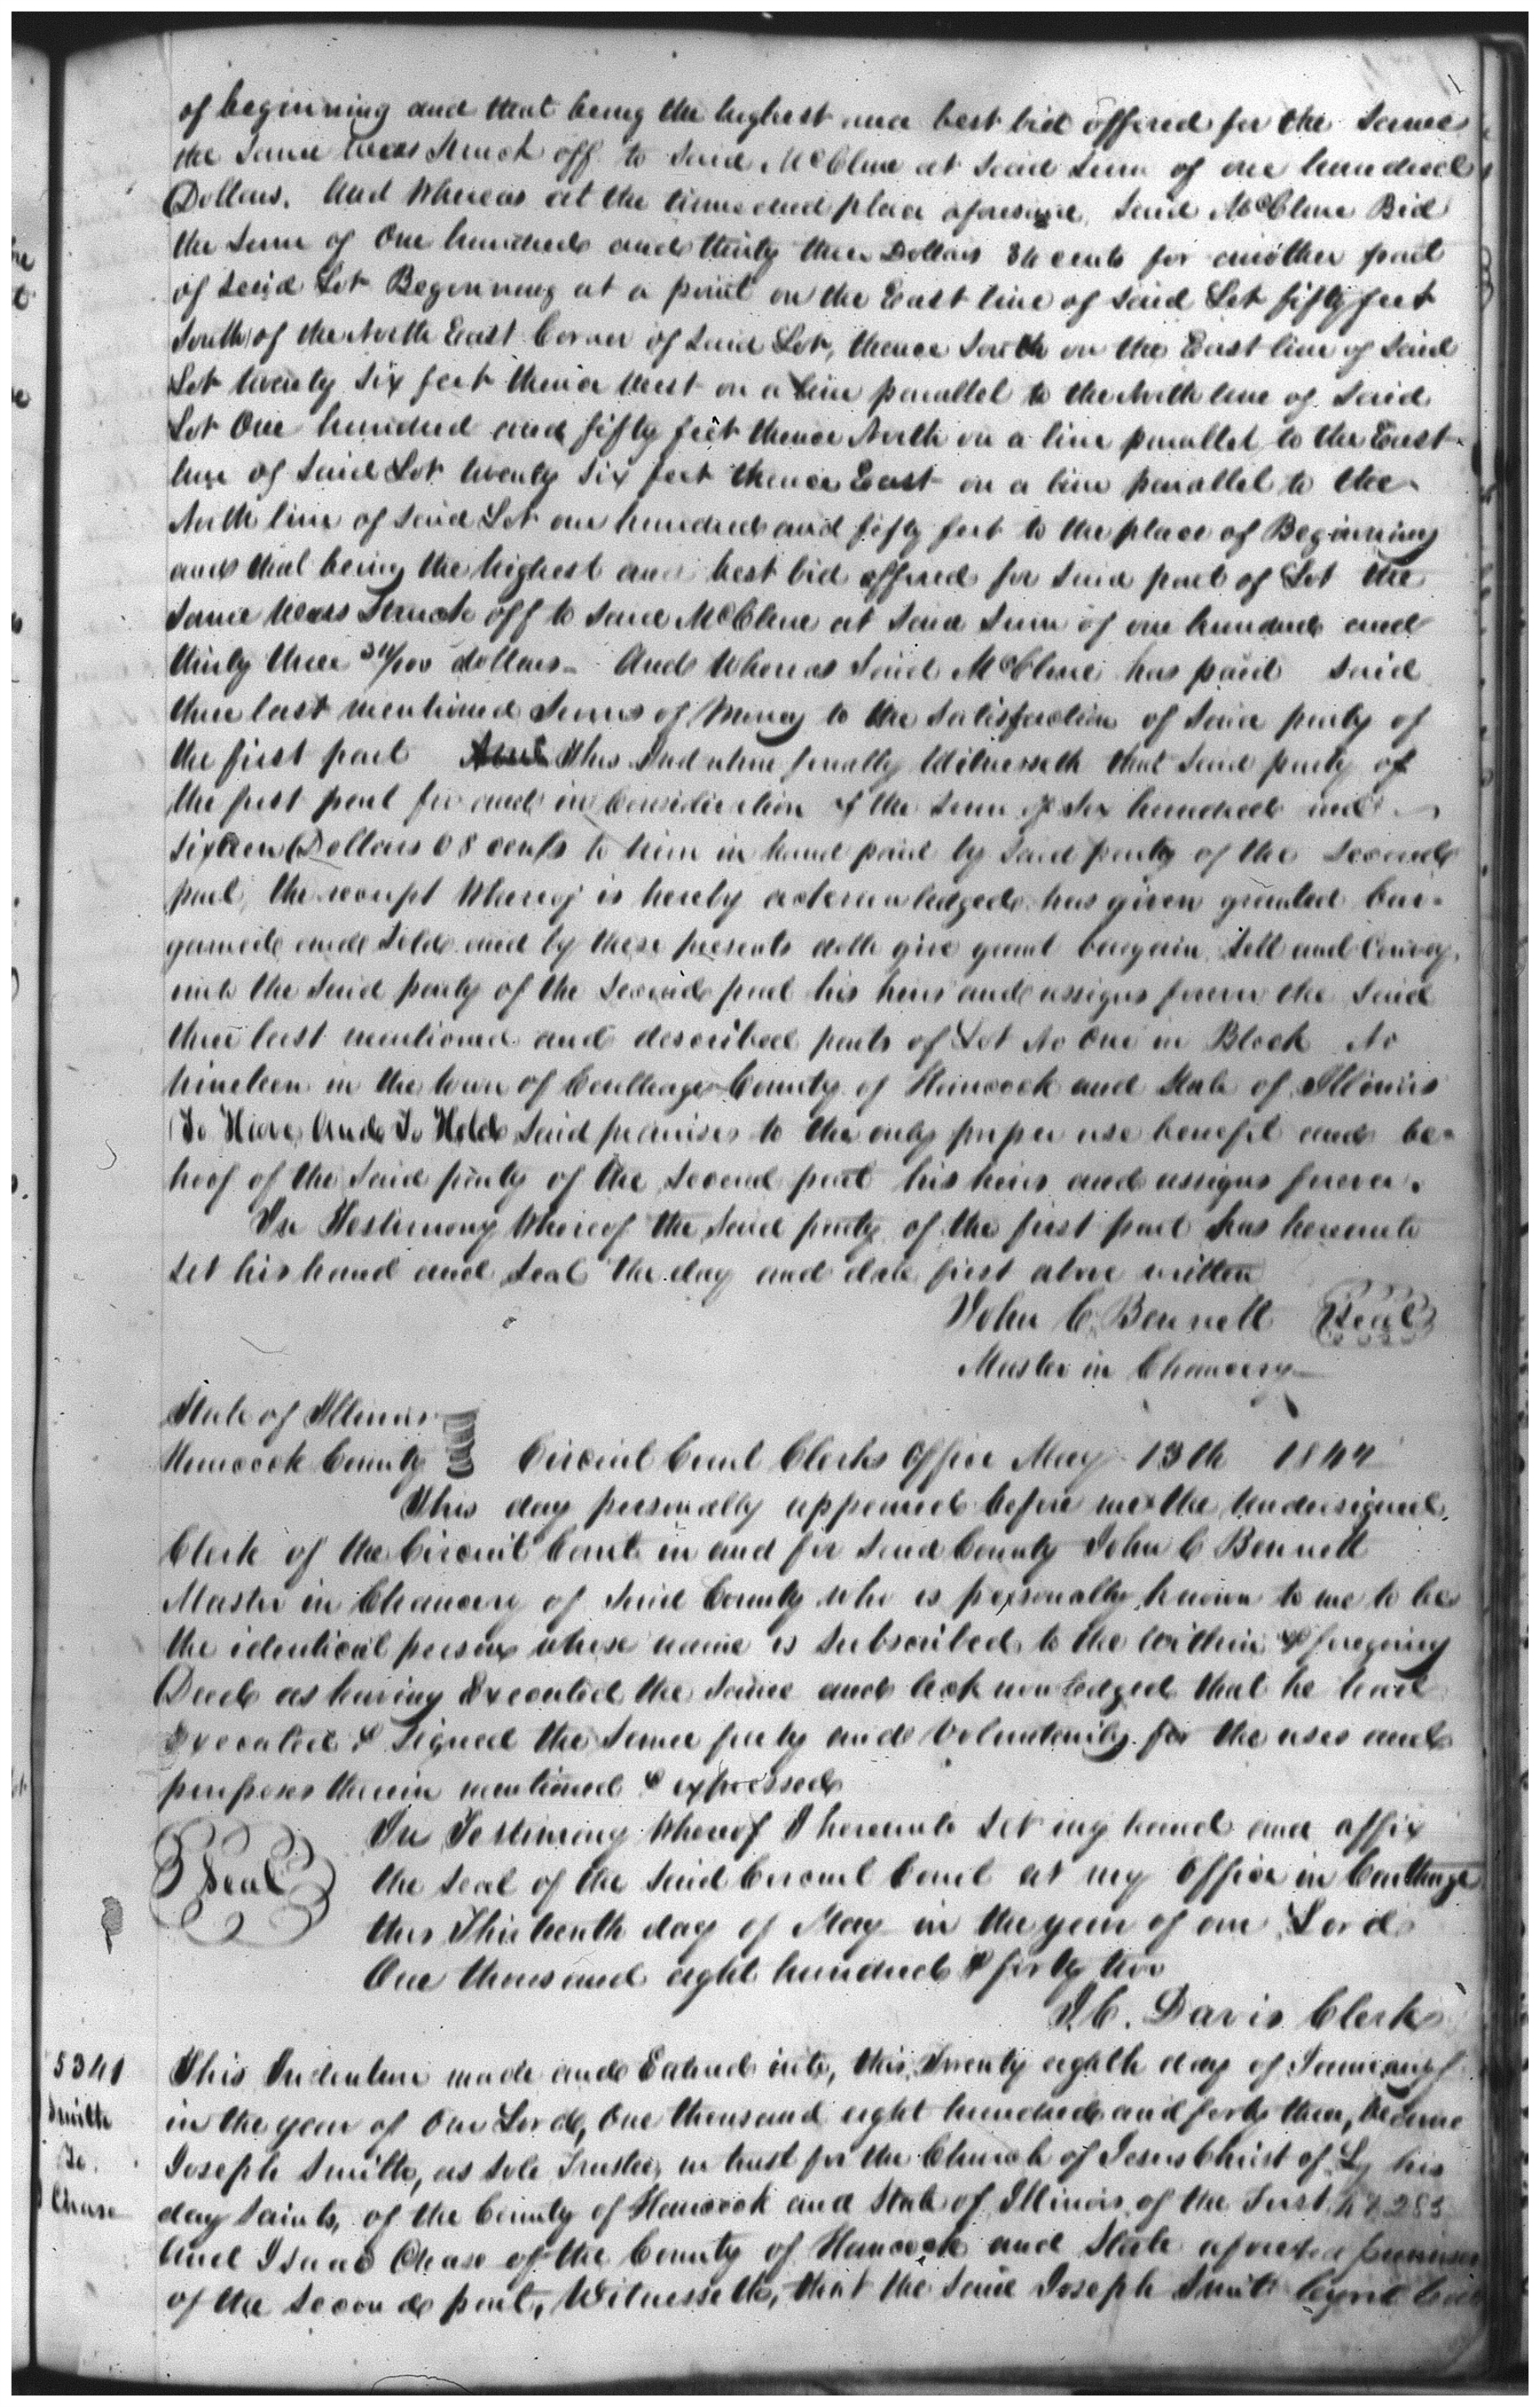 of beginning and that being the highest and best bid offered for the same
the same was Struck off to said McClure at said sum of one hundred
Dollars. And Whereas at the time and place aforesaid said McClure Bid
the sum of One hundred and thirty three Dollars 34 cents for another part
of said Lot Beginning at a point on the East line of said Lot fifty feet
South of the North East Corner of said Lot, thence South on the East line of said
Lot twenty six feet thence West on a line parallel to the North line of said
Lot One hundred and fifty feet thence North on a line parallel to the East
line of said Lot twenty six feet thence East on a line parallel to the
North line of said Lot one hundred and fifty feet to the place of Beginning
and that being the highest and best bid offered for said part of Lot the
same was Struck off to said McClure at said sum of one hundred and
thirty three 34/100 dollars - And Whereas Said McClure has paid said
three last mentioned sums of Money to the satisfaction of said party of
the first part This Indenture finally Witnesseth that said party of
the first part for and in Consideration of the sum of Six hundred and
sixteen Dollars 08 cents to him in hand paid by said party of the second
part, the receipt Whereof is hereby acknowledged has given granted bar-
gained and Sold and by these presents doth give grant bargain, Sell and Convey
unto the said party of the second part his heirs and assigns forever the said
three last mentioned and described parts of Lot No One in Block No
nineteen in the town of Carthage County of Hancock and State of Illinois
To Have And To Hold said premises to the only proper use benefit and be-
hoof of the said party of the second part his heirs and assigns forever.
In Testimony Whereof the said party of the first part has hereunto
set his hand and seal the day and date first above written
John C. Bennett Seal
Master in Chancery
State of Illinois
Hancock County Circuit Court Clerks Office May 13th 1842
This day personally appeared before me the Undersigned
Clerk of the Circuit Court in and for said County John C Bennett
Master in Chancery of said County who is personally known to me to be
the identical person whose name is subscribed to the within & foregoing
Deed as having Executed the same and acknowledged that he had
Executed & signed the same freely and Voluntarily for the uses and
purposes therein mentioned & expressed
Seal In Testimony Whereof I hereunto set my hand and affix
the seal of the said Circuit Court at my Office in Carthage
this Thirteenth day of May in the year of our Lord
One thousand eight hundred & forty two
J.C. Davis Clerk
5341 This Indenture made and Entered into, this Twenty eighth day of January
Smith in the year of Our Lord, One thousand eight hundred and forty three,
To Joseph Smith, as Sole Trustee, in trust for the Church of Jesus Christ of his
Chase day Saints, of the County of Hancock and State of Illinois, of the First
And Isaac Chase of the County of Hancock and State premises
of the second part, Witnesseth, that the said Joseph Smith